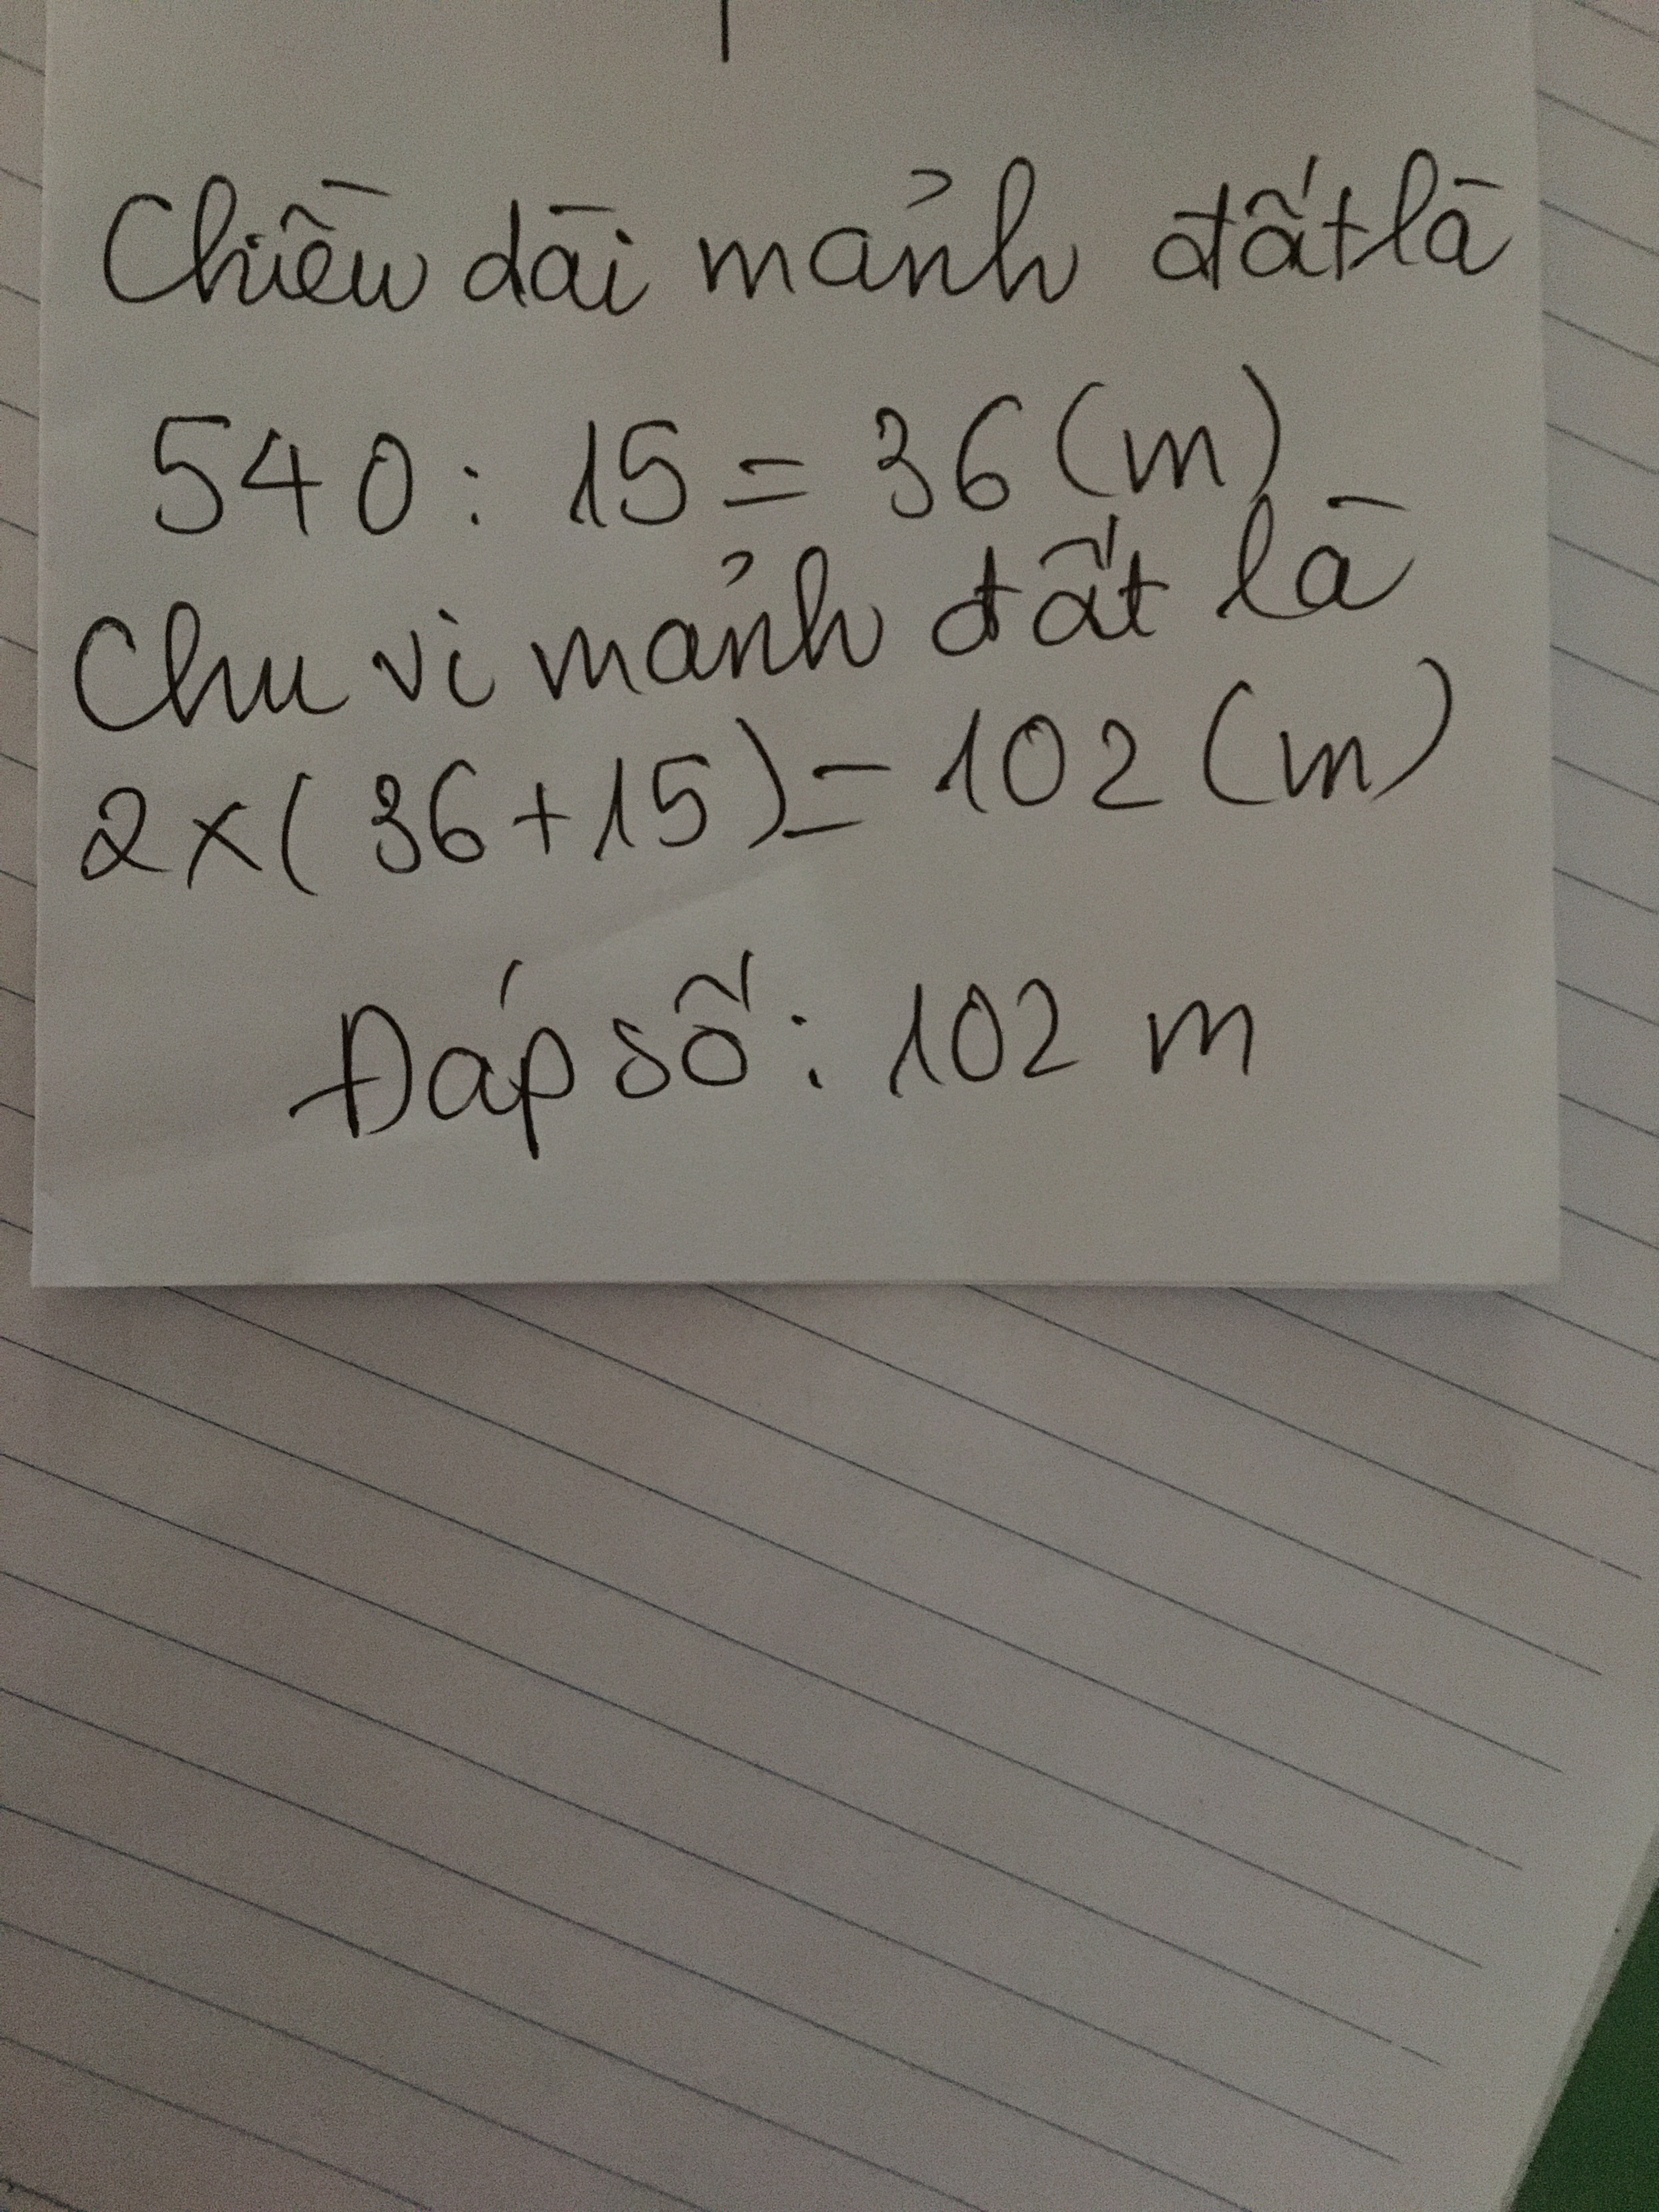 Chiều dài mảnh đất là
540 : 15 = 36 (m)
Chu vi mảnh đất là
2 x ( 36 + 15 ) = 102 (m)
Đáp số : 102 m